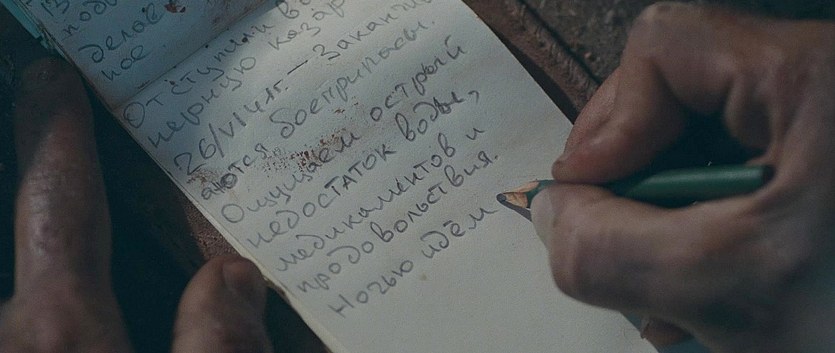 13
подв
делое
ное.
Отступили в
нерную казар
26/VI 41г. — Заканчи
аются боеприпасы.
Ощущаем острый
недостаток воды,
медикаментов и
продовольствия.
Ночью идём